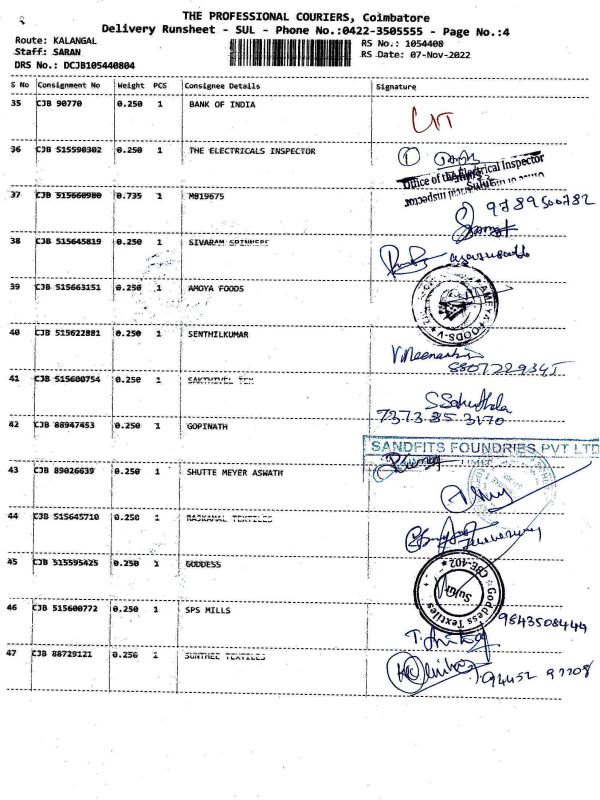 THE PROFESSIONAL COURIERS, Coimbatore
Delivery Runsheet - SUL - Phone No.:0422-3505555 - Page No.:4
Route: KALANGAL
Staff: SARAN
DRS No.: DCJB105440804
RS No.: 1054408
RS Date: 07-Nov-2022
S No Consignment No Weight PCS Consignee Details Signature
35 CJB 90770 0.250 1 BANK OF INDIA
36 CJB 515590302 0.250 1 THE ELECTRICALS INSPECTOR
Office of the Electrical Inspector
Sulur
37 CJB 515660980 0.735 1 MB19675
9789500782
38 CJB 515645819 0.250 1 SIVARAM SPINNERS
39 CJB 515663151 0.250 1 AMOYA FOODS
40 CJB 515622881 0.250 1 SENTHILKUMAR
V. Meenakshi
8807289345
41 CJB 515600754 0.250 1 SAKTHIVEL TEX
7373853170
42 CJB 88947453 0.250 1 GOPINATH
SANDFITS FOUNDRIES PVT LTD
43 CJB 89026639 0.250 1 SHUTTE MEYER ASWATH
44 CJB 515645710 0.250 1 RAJKAMAL TEXTILES
45 CJB 515595425 0.250 1 GODDESS
Goddess Textiles
CBE-402
Sulur
46 CJB 515600772 0.250 1 SPS MILLS
9843508444
47 CJB 88729121 0.250 1 SUNTHEC TEXTILES
94452 97708